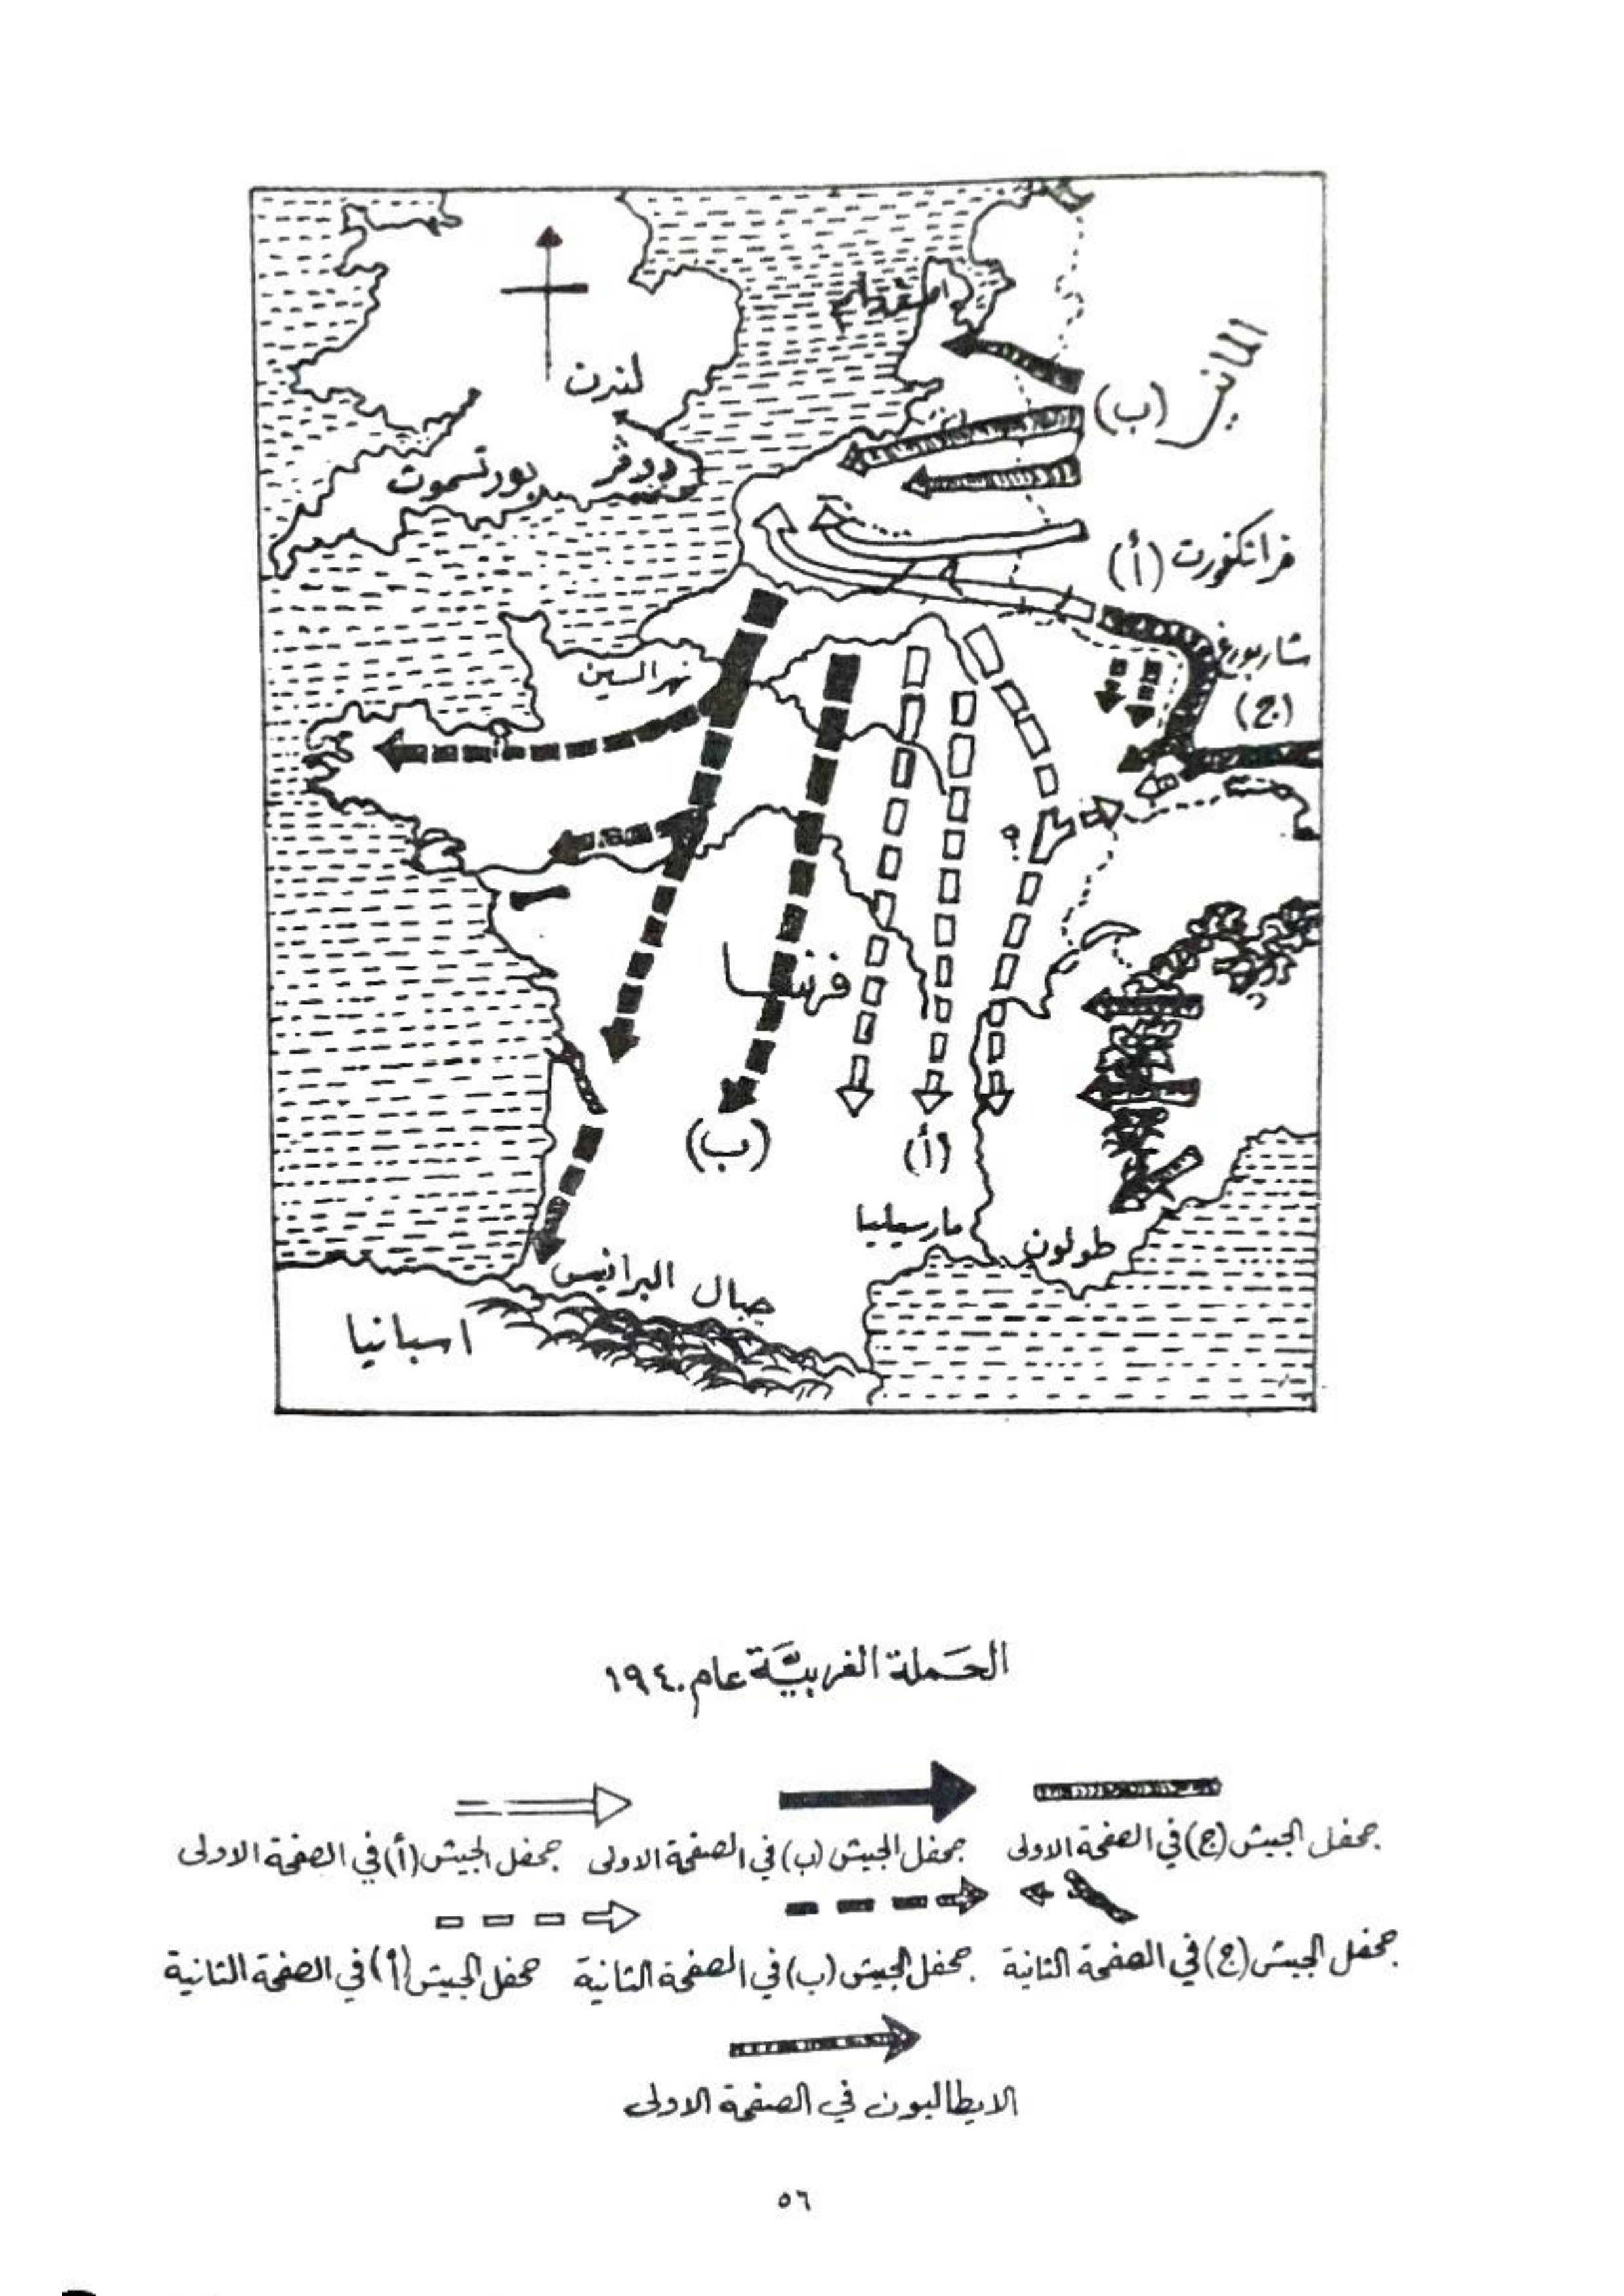 امستردام
المانيا
لندن
(ب)
دوفر
بورتسموث
فرانكفورت (أ)
شاربورغ
نهر السين
(ج)
فرنسا
(ب)
(أ)
مارسيليا
طولون
جبال البرانيس
اسبانيا
الحَملة الغربيَّة عام ١٩٤٠
جحفل الجيش (ج) في الصفحة الاولى
جحفل الجيش (ب) في الصفحة الاولى
جحفل الجيش (أ) في الصفحة الاولى
جحفل الجيش (ج) في الصفحة الثانية
جحفل الجيش (ب) في الصفحة الثانية
جحفل الجيش (أ) في الصفحة الثانية
الايطاليون في الصفحة الاولى
٥٦